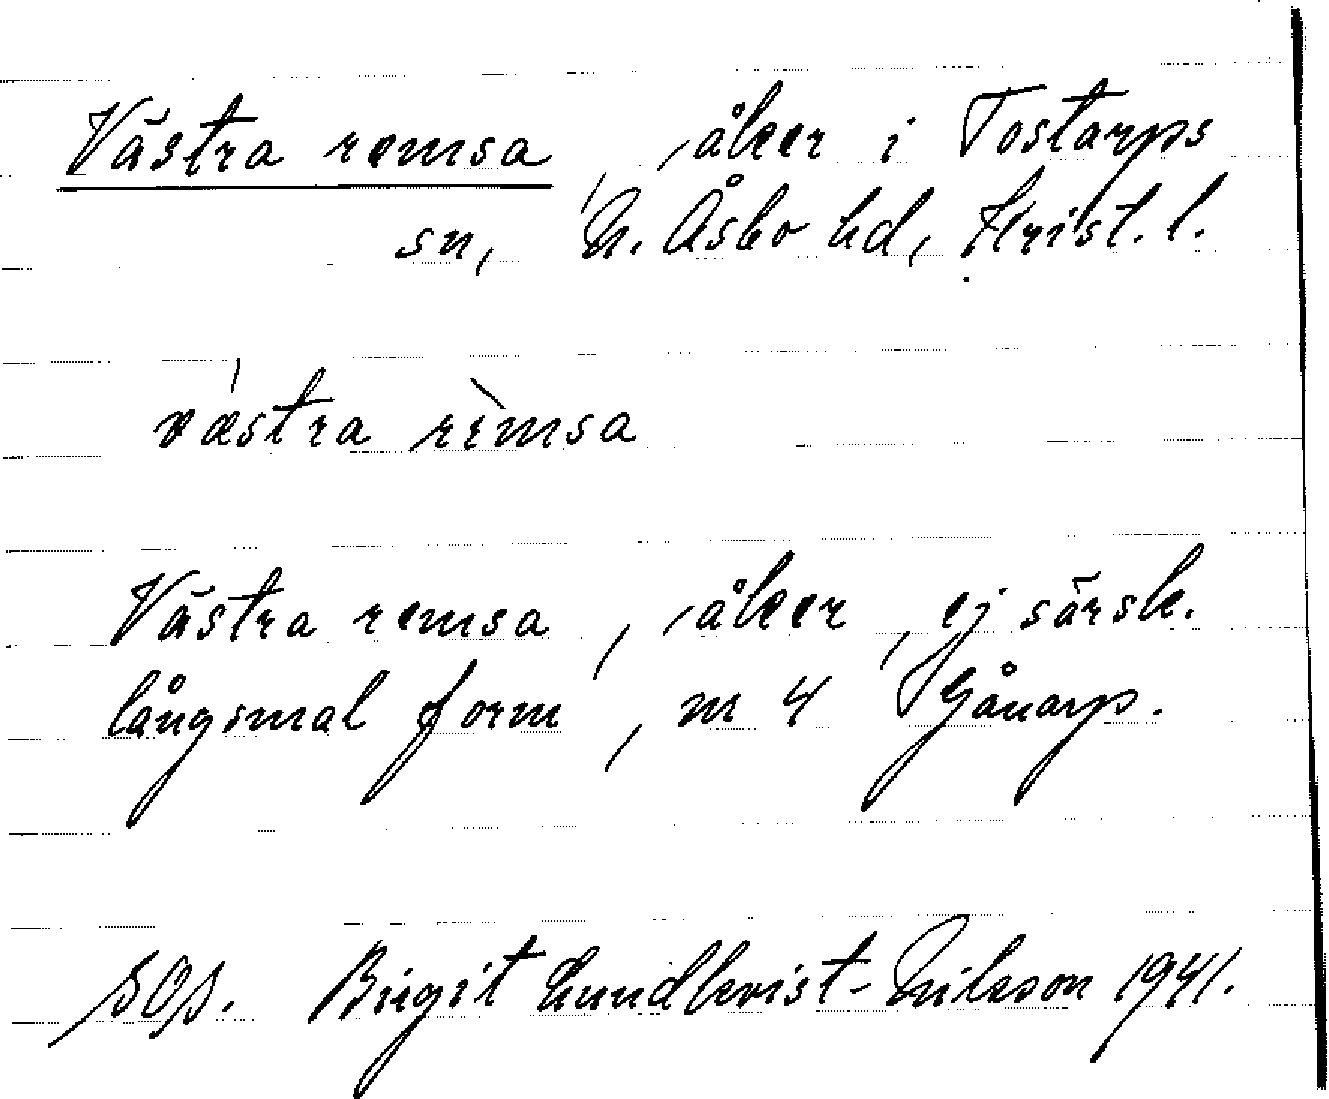 Västra remsa, åker i Tostarps
sn, N. Åsbo hd, Krist. l.
västra rèmsa
Västra remsa, åker, ej särsk.
långsmal form, nr 4 Gånarp.
SOA. Birgit Lundkvist-Nilsson 1941.